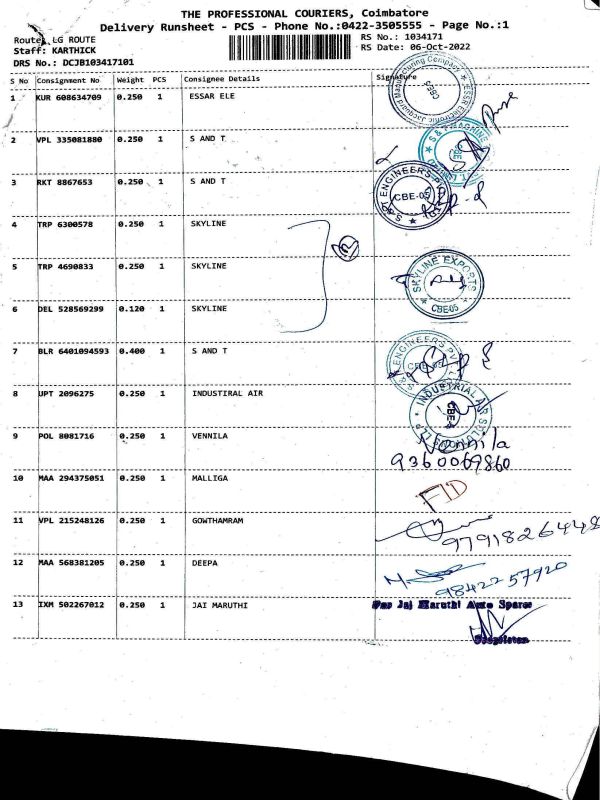 THE PROFESSIONAL COURIERS, Coimbatore
Delivery Runsheet - PCS - Phone No.:0422-3505555 - Page No.:1
Route: LG ROUTE
RS No.: 1034171
Staff: KARTHICK
RS Date: 06-Oct-2022
DRS No.: DCJB103417101
S No Consignment No Weight PCS Consignee Details Signature
1 KUR 608634709 0.250 1 ESSAR ELE
2 VPL 335081880 0.250 1 S AND T
3 RKT 8867653 0.250 1 S AND T
S&T ENGINEERS CBE-05
4 TRP 6300578 0.250 1 SKYLINE
5 TRP 4690833 0.250 1 SKYLINE
SKYLINE EXPORTS CBE05
6 DEL 528569299 0.120 1 SKYLINE
7 BLR 6401094593 0.400 1 S AND T
8 UPT 2096275 0.250 1 INDUSTIRAL AIR
INDUSTRIAL AIR
9 POL 8081716 0.250 1 VENNILA
Vennila
9360069860
10 MAA 294375051 0.250 1 MALLIGA
11 VPL 215248126 0.250 1 GOWTHAMRAM
9791826448
12 MAA 568381205 0.250 1 DEEPA
9842257920
13 IXM 502267012 0.250 1 JAI MARUTHI
For Jai Maruthi Auto Spares